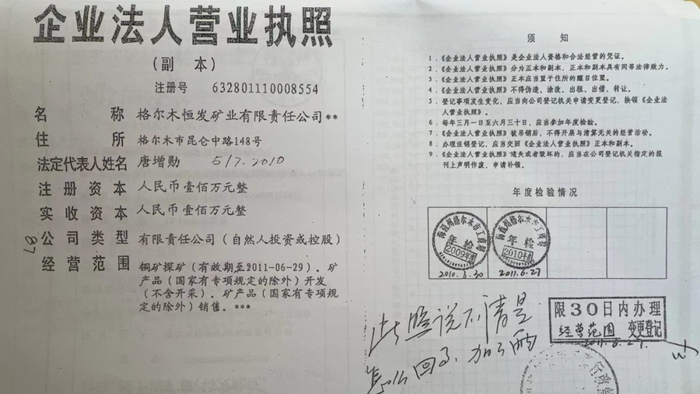 企业法人营业执照
(副 本)
注册号 632801110008554
名 称 格尔木恒发矿业有限责任公司**
住 所 格尔木市昆仑中路148号
法定代表人姓名 唐增勋 5/7.2010
注册资本 人民币壹佰万元整
实收资本 人民币壹佰万元整
公司类型 有限责任公司(自然人投资或控股)
87
经营范围 铜矿探矿(有效期至2011-06-29)、矿
产品(国家有专项规定的除外)开发
(不含开采)。矿产品(国家有专项规
定的除外)销售。***
须 知
1.《企业法人营业执照》是企业法人资格和合法经营的凭证。
2.《企业法人营业执照》分为正本和副本,正本和副本具有同等法律效力。
3.《企业法人营业执照》正本应当置于住所的醒目位置。
4.《企业法人营业执照》不得伪造、涂改、出租、出借、转让。
5.登记事项发生变化,应当向公司登记机关申请变更登记,换领《企业法
人营业执照》。
6.每年三月一日至六月三十日,应当参加年度检验。
7.《企业法人营业执照》被吊销后,不得开展与清算无关的经营活动。
8.办理注销登记,应当交回《企业法人营业执照》正本和副本。
9.《企业法人营业执照》遗失或者毁坏的,应当在公司登记机关指定的报
刊上声明作废,申请补领。
年度检验情况
年检
2009年
2010.6.30
年检
2010年
2011.6.27
限30日内办理
经营范围 变更登记
此照说不清是
怎么回了,加